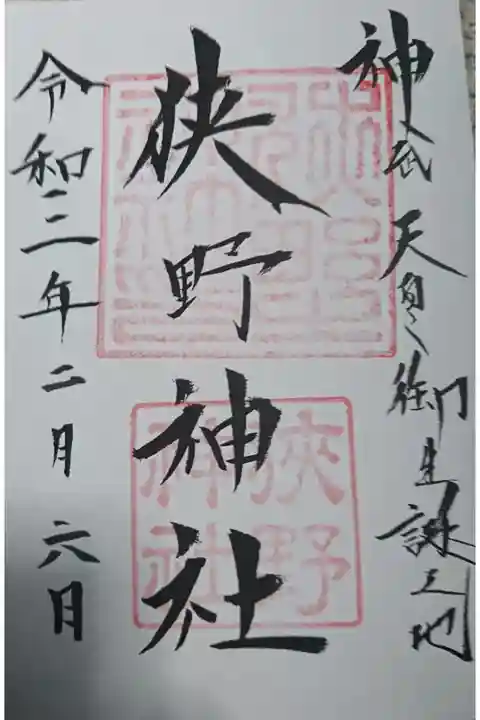 神武天皇御生誕之地
狭野神社
狹野
神社
令和三年二月六日